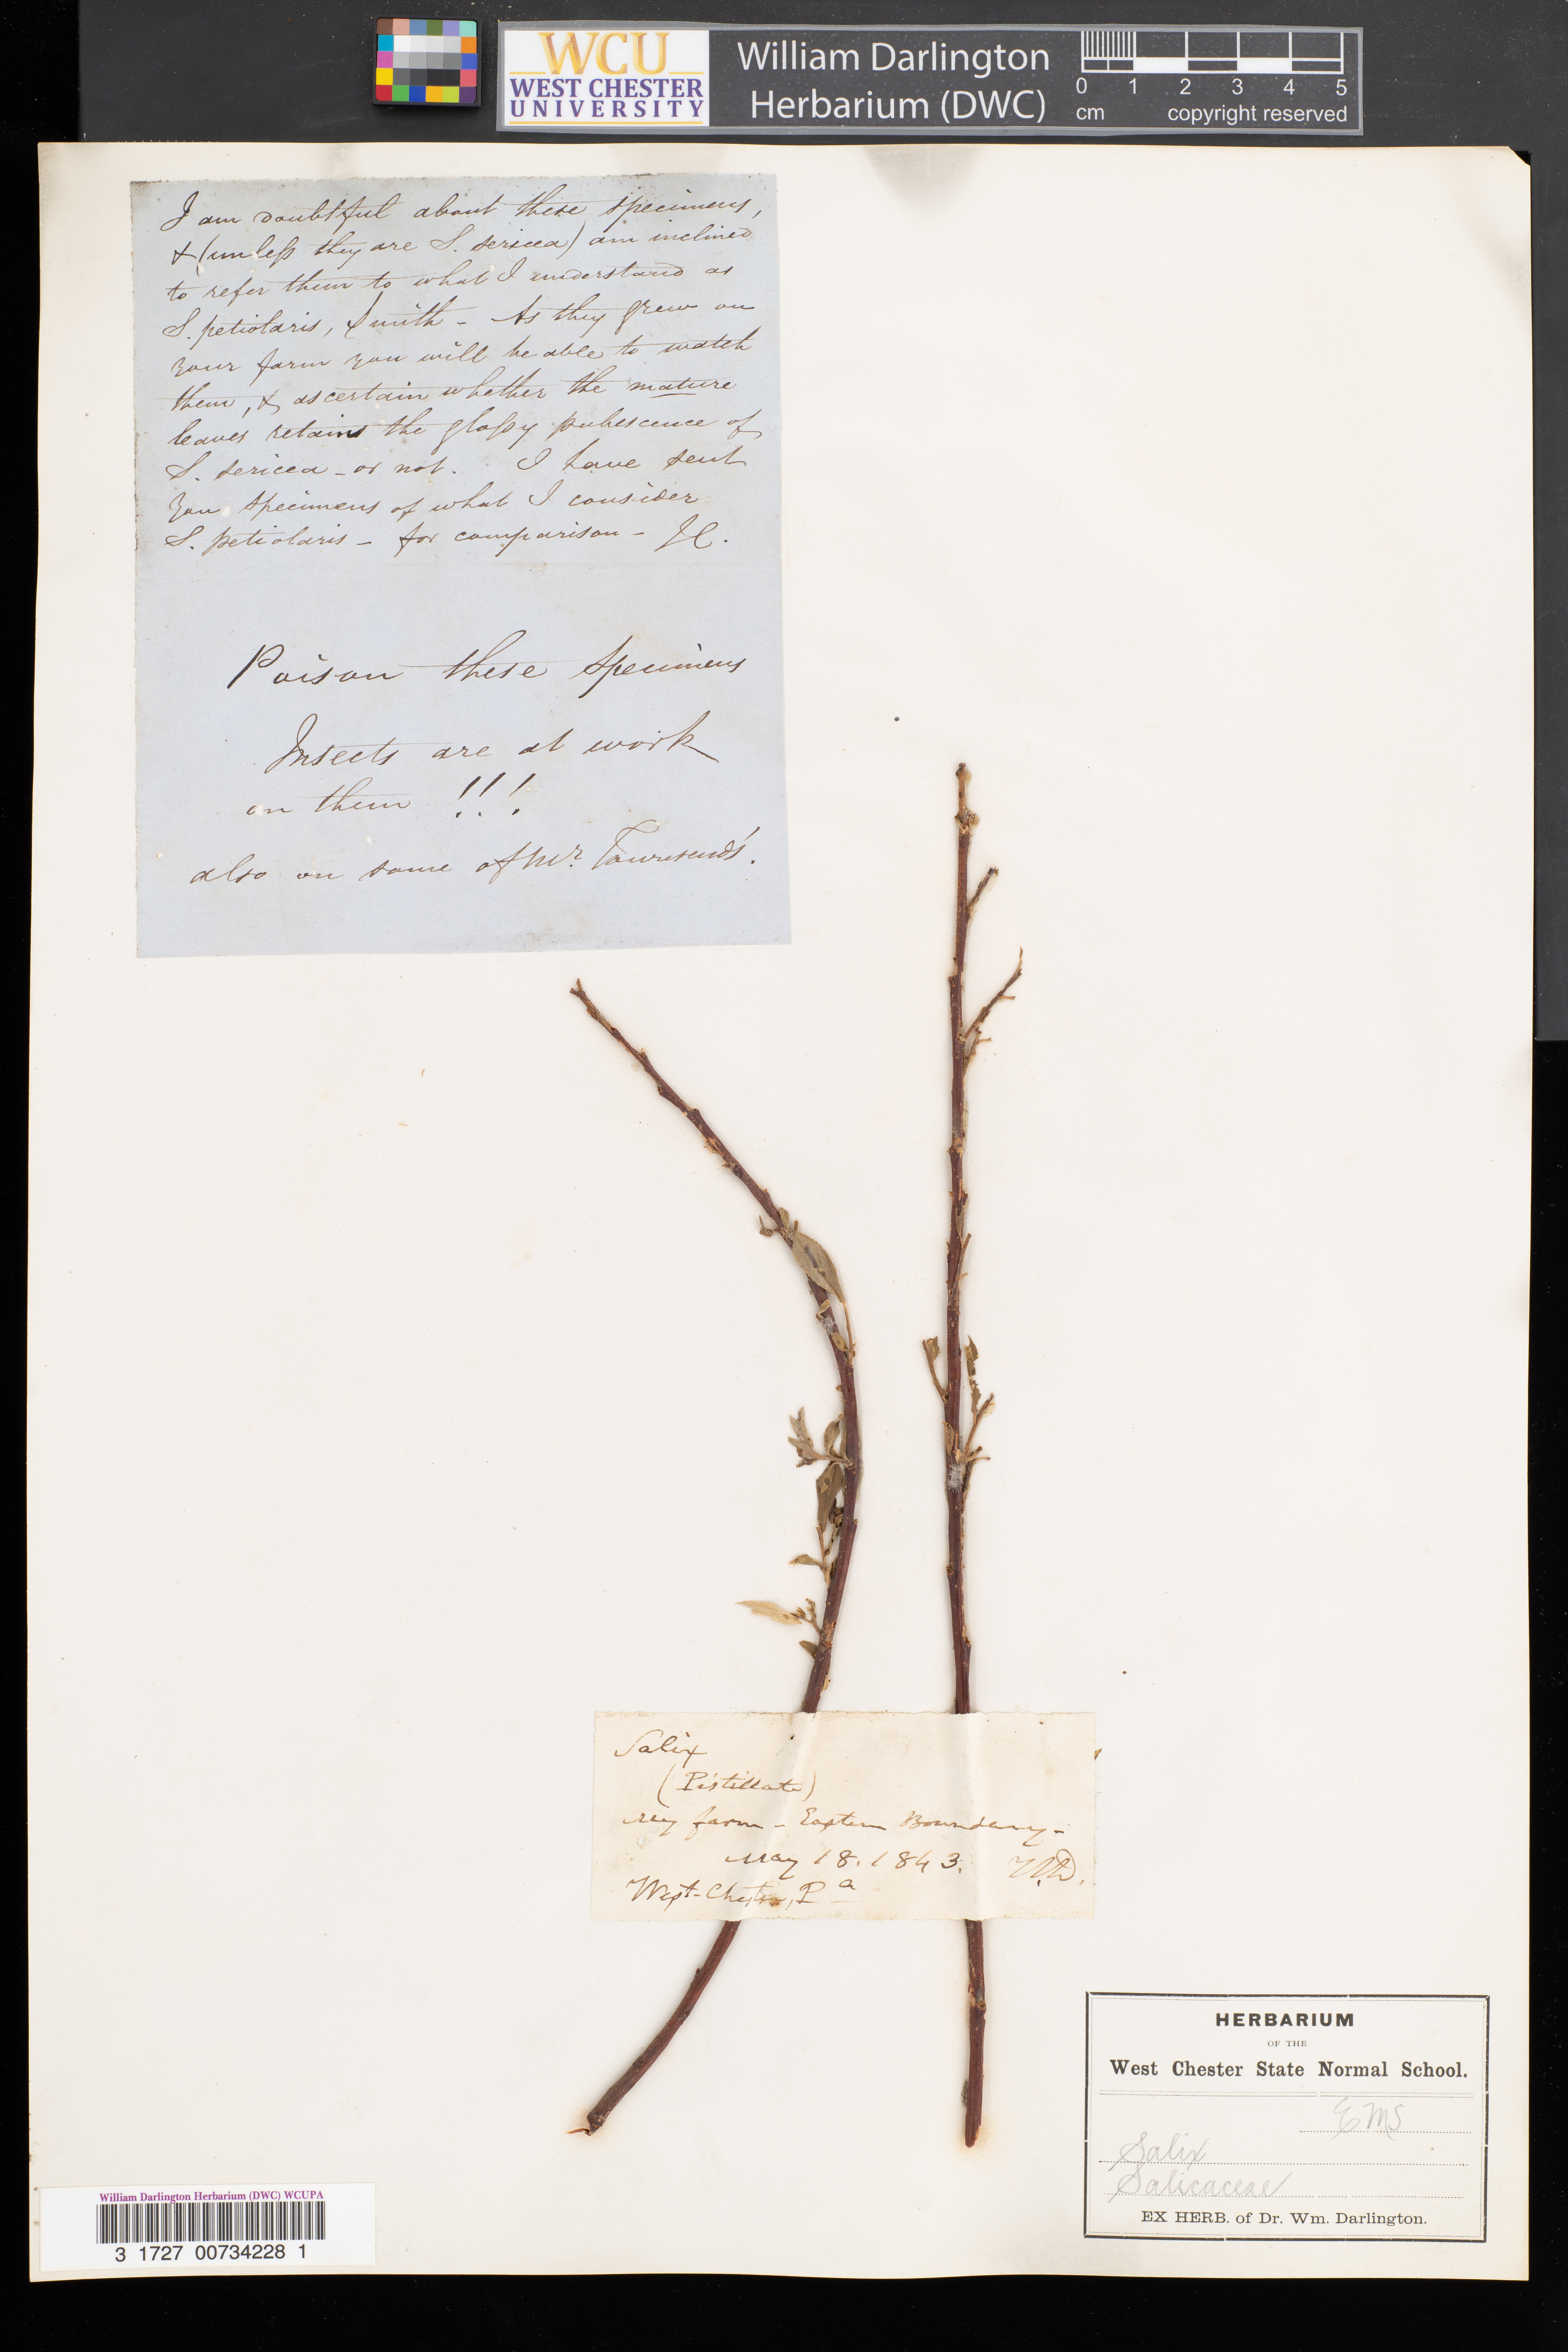 WCU
WEST CHESTER
UNIVERSITY
William Darlington
Herbarium (DWC)
0 1 2 3 4 5
cm copyright reserved
I am doubtful about these specimens,
& (unless they are S. sericea) am inclined
to refer them to what I understand as
S. petiolaris, Smith - As they grew on
your farm you will be able to watch
them, & ascertain whether the mature
leaves retains the glossy pubescence of
S. sericea - or not. I have sent
you specimens of what I consider
S. petiolaris - for comparison - J.C.
Poison these specimens
Insects are at work
on them !!!
also on some of Mr. Townsend's.
Salix
(Pistillate)
my farm - Eastern Boundary -
May 18. 1843. W.D.
West-Chester, Pa
HERBARIUM
OF THE
West Chester State Normal School.
EMS
Salix
Salicaceae
EX HERB. of Dr. Wm. Darlington.
William Darlington Herbarium (DWC) WCUPA
3 1727 00734228 1